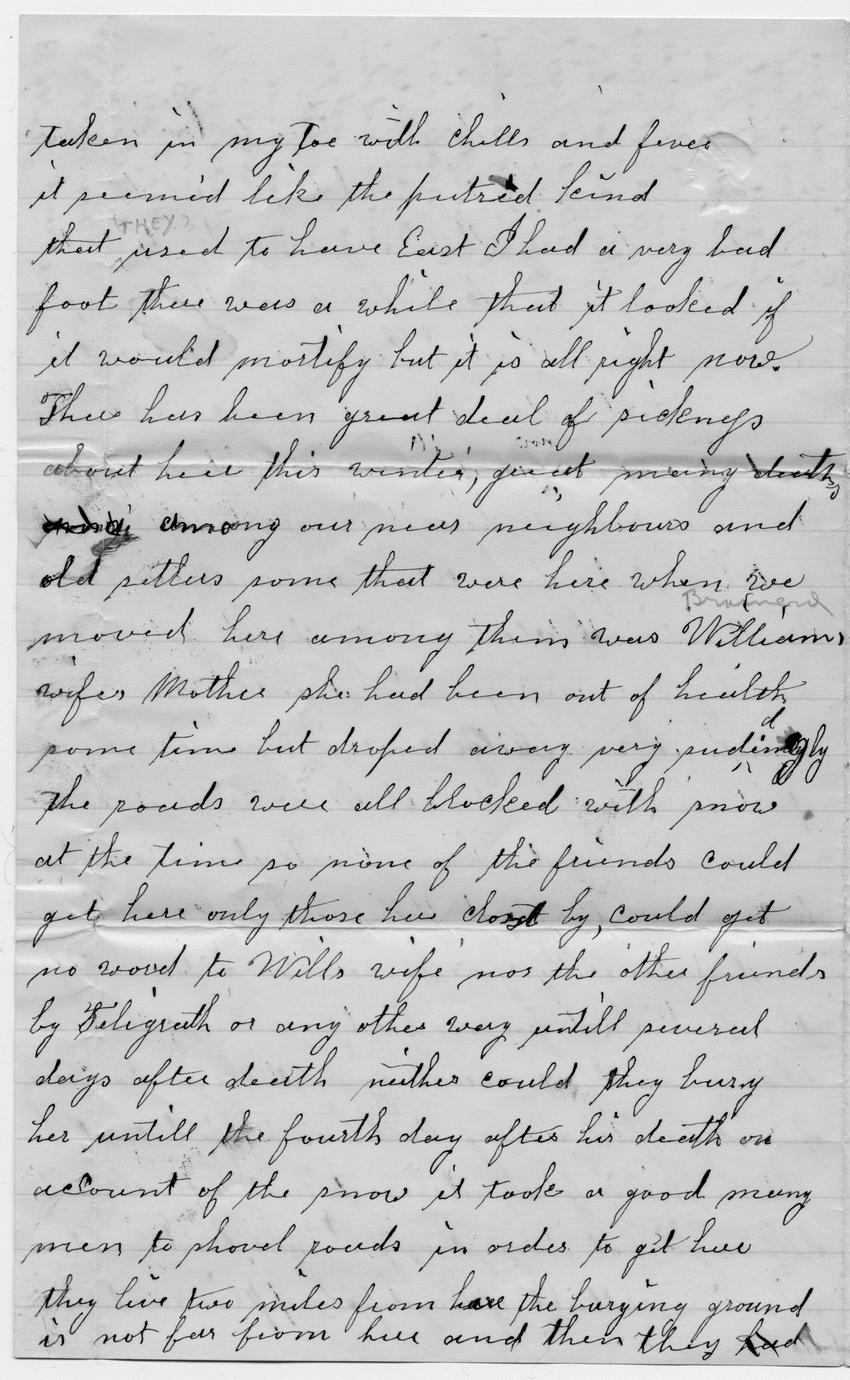 taken in my Toe with chills and fever
it seemed like the putred kind
THEY
that used to have East I had a very bad
foot there was a while that it looked if
it would mortify but it is all right now.
Thee has been great deal of sickness
about here this winter, great many deaths
among our near neighbours and
old setlers some that were here when we
Brainard
moved here among them was Williams
wifes Mother she had been out of health
some time but droped away very sudingly
d
the roads were all blocked with snow
at the time so none of the friends could
get here only those here closst by, could get
no word to Wills wife nor the other friends
by Teligrath or any other way untill several
days after death neither could they bury
her untill the fourth day after hir death on
account of the snow it took a good many
men to shovel roads in order to get here
they live two miles from here the burying ground
is not far from here and then they had